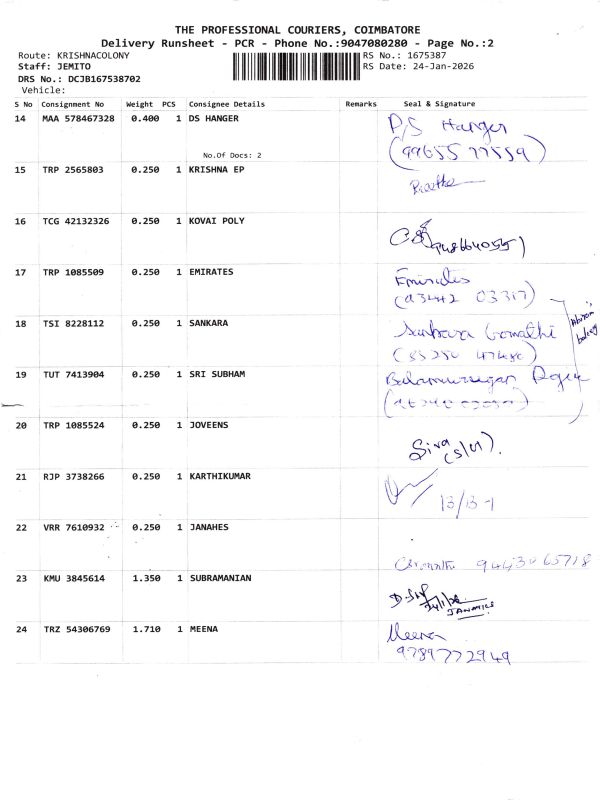 THE PROFESSIONAL COURIERS, COIMBATORE
Delivery Runsheet - PCR - Phone No.:9047080280 - Page No.:2
Route: KRISHNACOLONY RS No.: 1675387
Staff: JEMITO RS Date: 24-Jan-2026
DRS No.: DCJB167538702
Vehicle:
S No Consignment No Weight PCS Consignee Details Remarks Seal & Signature
14 MAA 578467328 0.400 1 DS HANGER D/S Hanger
No.Of Docs: 2 (99655 77559)
15 TRP 2565803 0.250 1 KRISHNA EP
16 TCG 42132326 0.250 1 KOVAI POLY
17 TRP 1085509 0.250 1 EMIRATES Emirates
18 TSI 8228112 0.250 1 SANKARA Sankara Gomathi
19 TUT 7413904 0.250 1 SRI SUBHAM Balamurugan
20 TRP 1085524 0.250 1 JOVEENS Siva
21 RJP 3738266 0.250 1 KARTHIKUMAR 13/13-1
22 VRR 7610932 0.250 1 JANAHES 9443065718
23 KMU 3845614 1.350 1 SUBRAMANIAN JANOMICS
24 TRZ 54306769 1.710 1 MEENA Meena
9789772949